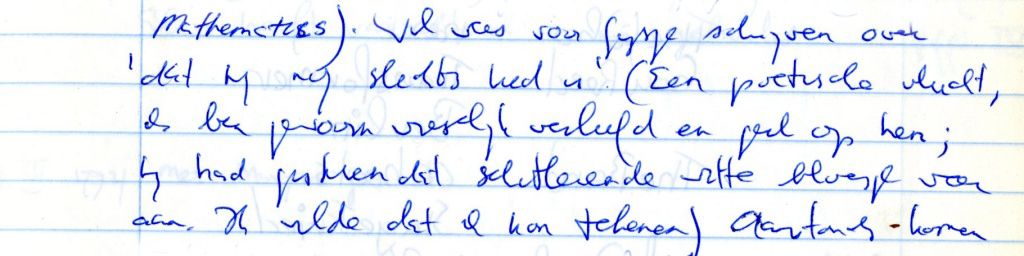 Mathematics). Vol vrees voor gypje schrijven over
'dat hij nog slechts lied is'. (Een poëtische vlucht,
ik ben gewoon vreselijk verliefd en geil op hem;
hij had gisteren dat schitterende witte bloesje weer
aan. Ik wilde dat ik kon tekenen) - komen